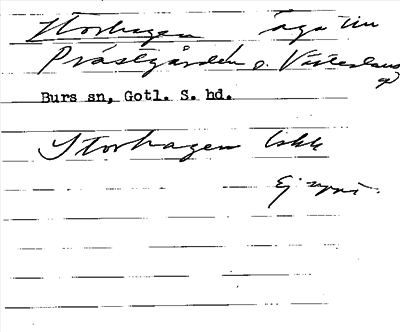 Storhagen äga till
Prästgården o. Västerlaus
Burs sn, Gotl. S. hd.
Storhagen
Ej